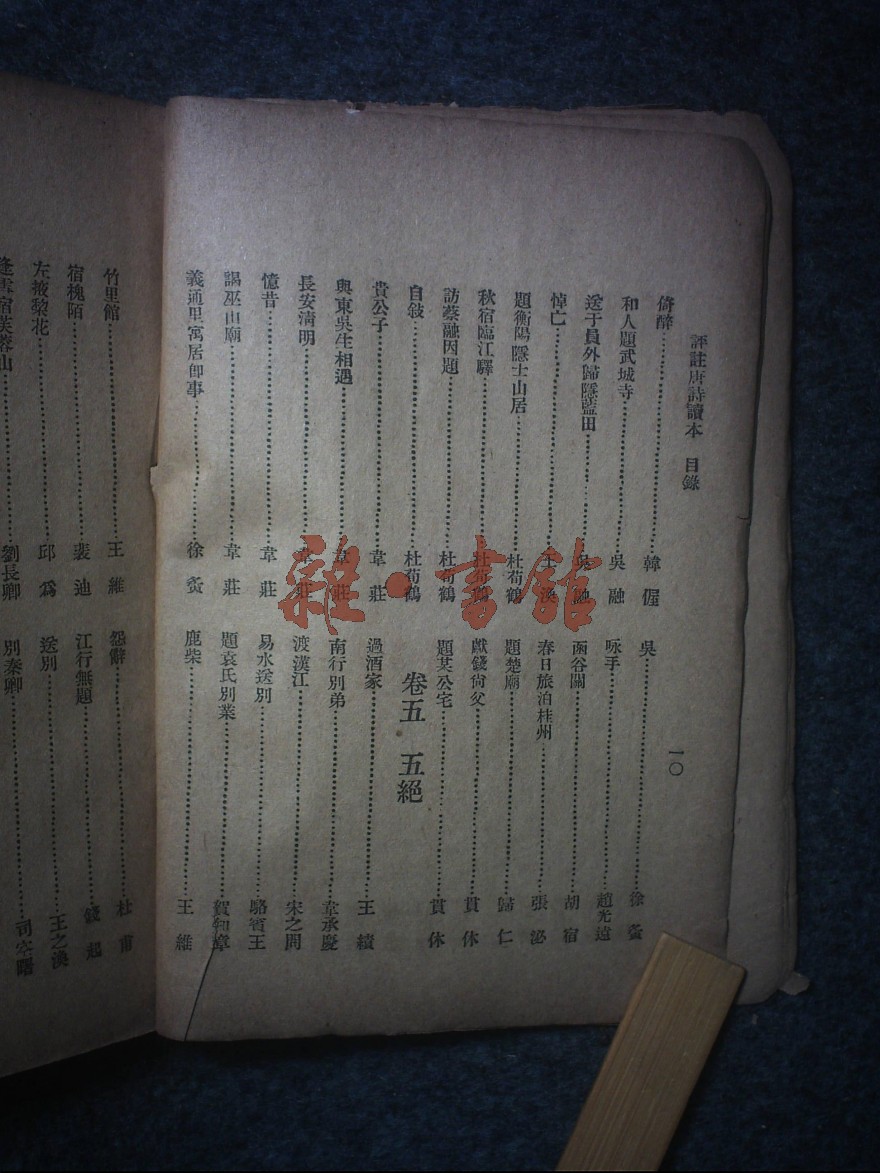 評註唐詩讀本 目錄
一〇
倚醉 韓偓
和人題武城寺 吳融
送于員外歸隱藍田 吳融
悼亡 王渙
題衡陽隱士山居 杜荀鶴
秋宿臨江驛 杜荀鶴
訪蔡融因題 杜荀鶴
自敍 杜荀鶴
貴公子 韋莊
與東吳生相遇 韋莊
長安清明 韋莊
憶昔 韋莊
謁巫山廟 韋莊
義通里寓居卽事 徐夤
吳 徐夤
咏手 趙光遠
函谷關 胡宿
春日旅泊桂州 張泌
題楚廟 歸仁
獻錢尙父 貫休
題某公宅 貫休
卷五 五絕
過酒家 王績
南行別弟 韋承慶
渡漢江 宋之問
易水送別 駱賓王
題袁氏別業 賀知章
鹿柴 王維
竹里館 王維
宿槐陌 裴迪
左掖梨花 邱爲
逢雪宿芙蓉山 劉長卿
怨辭 杜甫
江行無題 錢起
送別 王之渙
別秦卿 司空曙
雜·書館